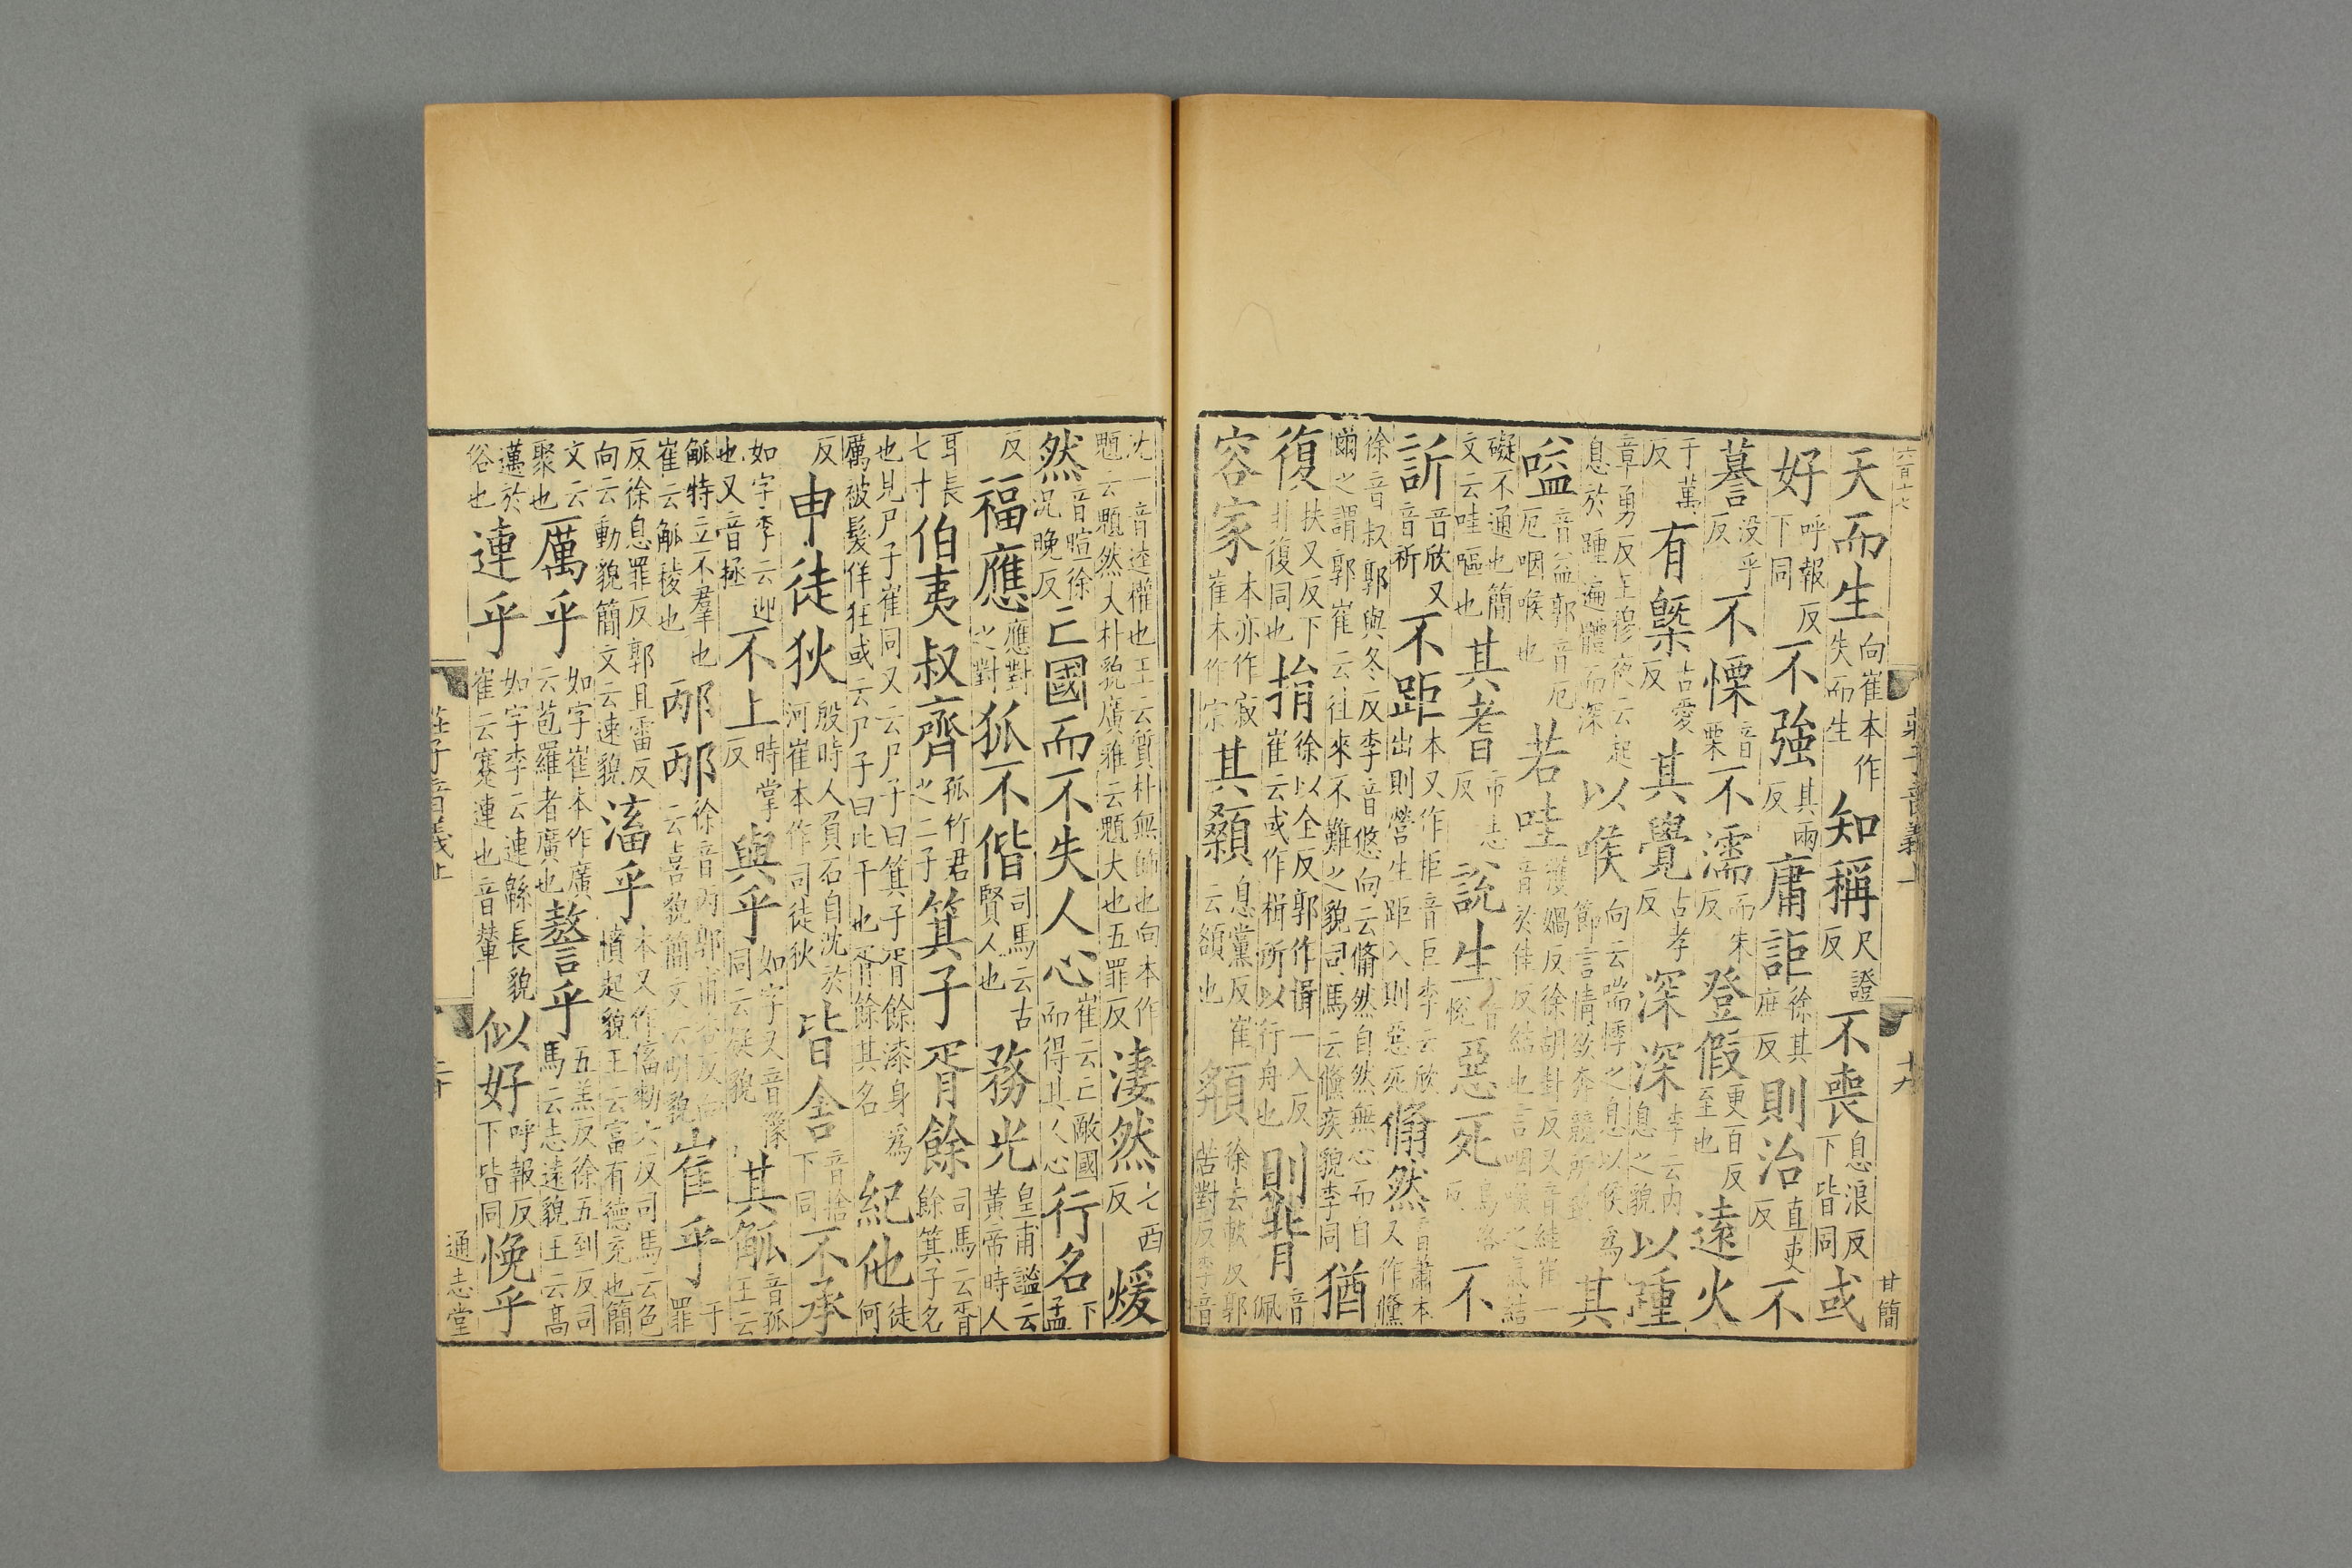 六百十六
莊子音義上
十九
甘簡
天而生向崔本作失而生知稱尺證反不喪息浪反下皆同或
好呼報反下同不強其兩反庸詎徐其庶反則治直吏反不
謩沒乎反不慄音栗不濡而朱反登假更百反至也遠火
于萬反有槩古愛反其覺古孝反深深李云內息之貌以踵
章勇反王穆夜云起息於踵遍體而深以喉向云喘悸之息以喉為節言情欲奔競所致其
嗌音益郭音厄厄咽喉也若哇獲媧反徐胡卦反又音絓崔一音於佳反結也言咽喉之氣結
礙不通也簡文云哇嘔也其耆市志反說生音悅惡死烏路反不
訢音欣又音祈不距本又作拒音巨李云欣出則營生距入則惡死翛然音蕭本又作儵
徐音叔郭與冬反李音悠向云翛然自然無心而自爾之謂郭崔云往來不難之貌司馬云儵疾貌李同猶
復扶又反下非復同也捐徐以全反郭作揖一入反崔云或作楫所以行舟也則背音佩
容家本亦作寂崔本作宗其顙息黨反崔云頟也頯徐去軌反郭苦對反李音
尤一音逵權也王云質朴無飾也向本作䫥云䫥然大朴貌廣雅云䫥大也五罪反淒然七西反煖
然音暄徐況晚反亡國而不失人心崔云亡敵國而得其人心行名下孟
反福應應對之對狐不偕司馬云古賢人也務光皇甫謐云黃帝時人
耳長七寸伯夷叔齊孤竹君之二子箕子胥餘司馬云胥餘箕子名
也見尸子崔同又云尸子曰箕子胥餘漆身為厲被髮佯狂或云尸子曰比干也胥餘其名紀他徒何
反申徒狄殷時人負石自沈於河崔本作司徒狄皆舍音捨下同不承
如字李云迎也又音拯不上時掌反與乎如字又音豫同云疑貌其觚音孤王云
觚特立不羣也崔云觚稜也邴邴徐音丙郭甫杏反向云喜貌簡文云明貌崔乎于罪
反徐息罪反郭且雷反向云動貌簡文云速貌滀乎本又作傗勑六反司馬云色憤起貌王云富有德充也簡
文云聚也厲乎如字崔本作廣云苞羅者廣也謷乎五羔反徐五到反司馬云志遠貌王云高
邁於俗也連乎如字李云連緜長貌崔云蹇連也音輦似好呼報反下皆同悗乎
莊子音義上
二十
通志堂